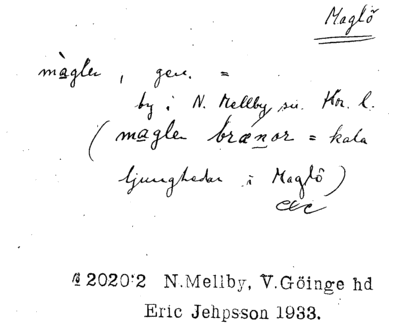 Maglö
màglen, gen. =
by i N. Mellby sn. Kr. l.
(maglen brænor = kala
ljunghedar i Maglö)
2020:2 N.Mellby, V.Göinge hd
Eric Jehpsson 1933.